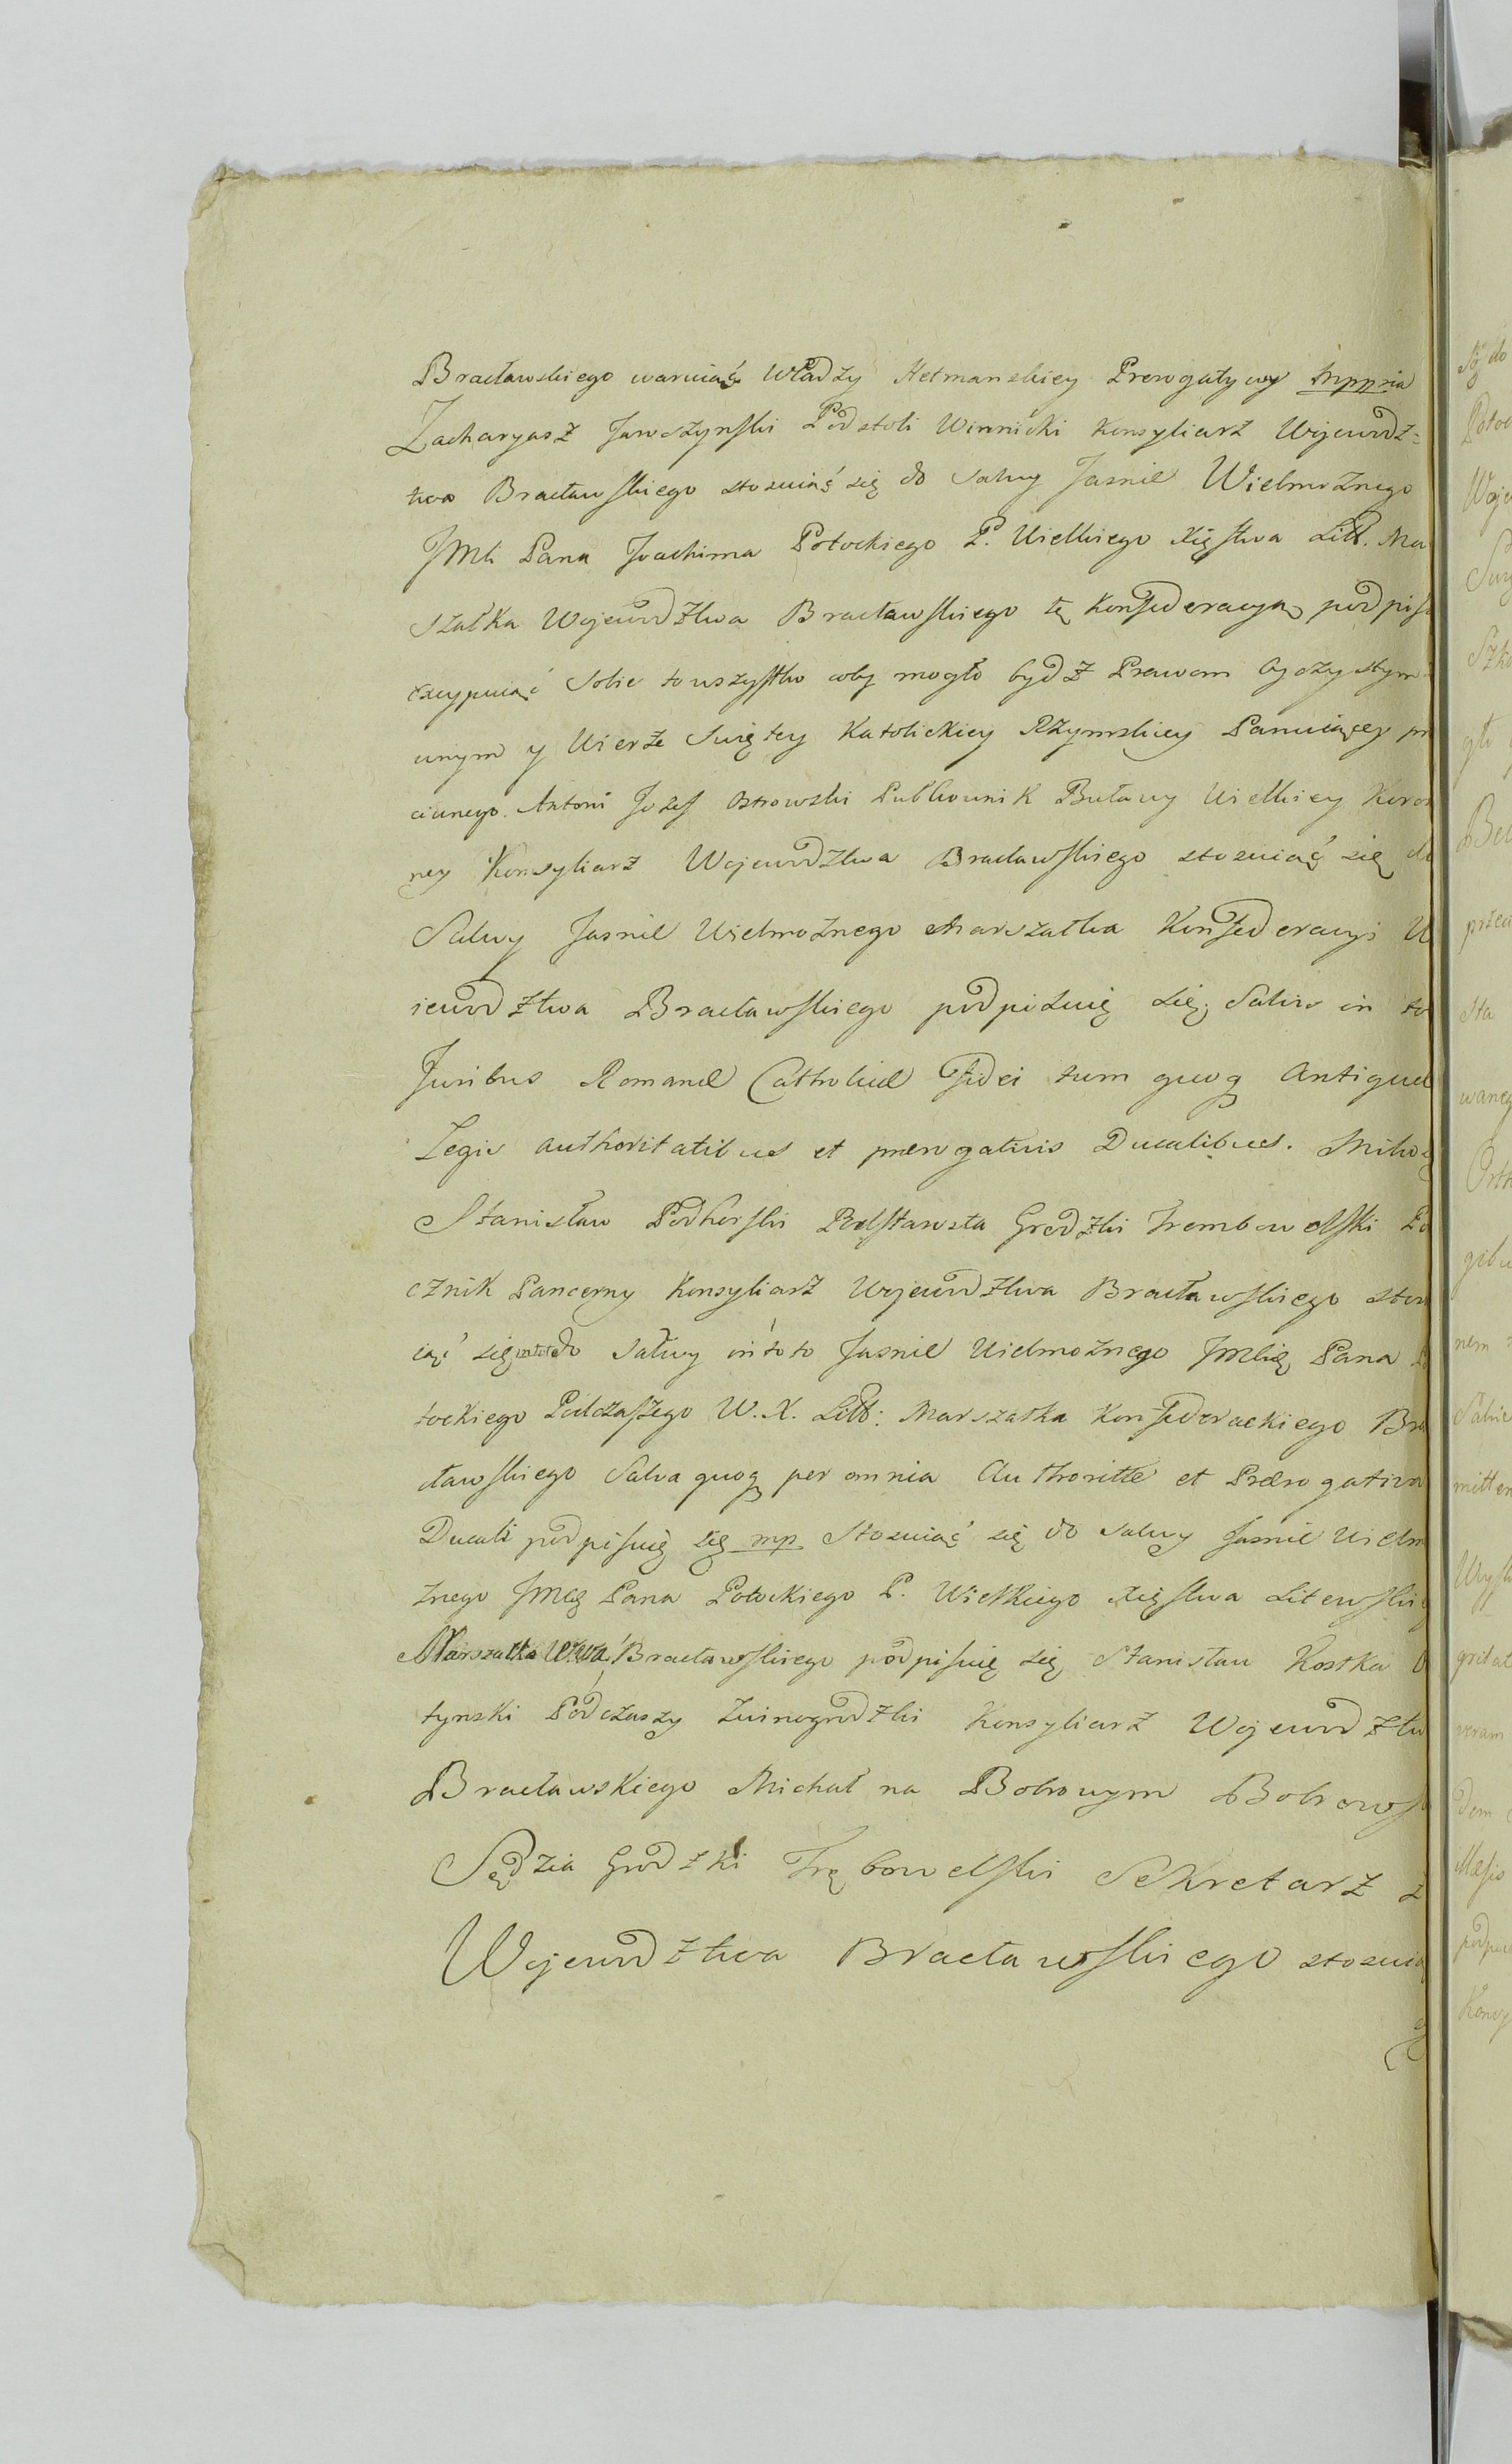 Bracławskiego waruiąc Władzy Hetmanskiey Prerogatywy mppria
Zacharyasz Jaroszynski Podstoli Winnicki Konsyliarz Wojewodz=
twa Bracławskiego stosuiąc się do Salwy Jasnie Wielmożnego
JMCi Pana Joachima Potockiego P. Wielkiego Xięstwa Litt. Mar
szałka Wojewodztwa Bracławskiego tę Konfederacyą podpisu
excypuiąc Sobie to wszystko coby mogło bydz Prawom Oyczystym
wnym y Wierze Swiętey Katolickiey Rzymskiey Panuiącey prz
ciwnego. Antoni Jozef Ostrowski Pułkownik Buławy Wielkiey Koron
ney Konsyliarz Wojewodztwa Bracławskiego stosuiąc się do
Salwy Jasnie Wielmożnego Marszałka Konfederacyi Wo
iewodztwa Bracławskiego podpisuię się, Salvis in to
Juribus Romanæ Catholicæ Fidei tum quoq Antiquæ
Legis authoritatibus et prærogativis Ducalibus. Mikoł
Stanisław Podhorski Podstarosta Grodzki Trembowelski Po
cznik Pancerny Konsyliarz Wojewodztwa Bracławskiego stosu
iąc się do Salwy in toto Jasnie Wielmożnego JMCię Pana Po
tockiego Podczaszego W. X. Litt: Marszałka Konfederackiego Bra
cławskiego Salva quoq per omnia Authoritte et Prærogativa
Ducali podpisuię się mp. Stosuiąc się do Salwy Jasnie Wielmo
żnego JMCię Pana Potockiego P. Wielkiego Xięstwa Litewski
Marszałka Bracławskiego podpisuię się Stanisław Kostka
tynski Podczaszy Zwinogrodzki Konsyliarz Wojewodztw
Bracławskiego Michał na Bobrowym Bobrows
Sędzia Grodzki Trębowelski Sekretarz
Wojewodztwa Bracławskiego stosuią